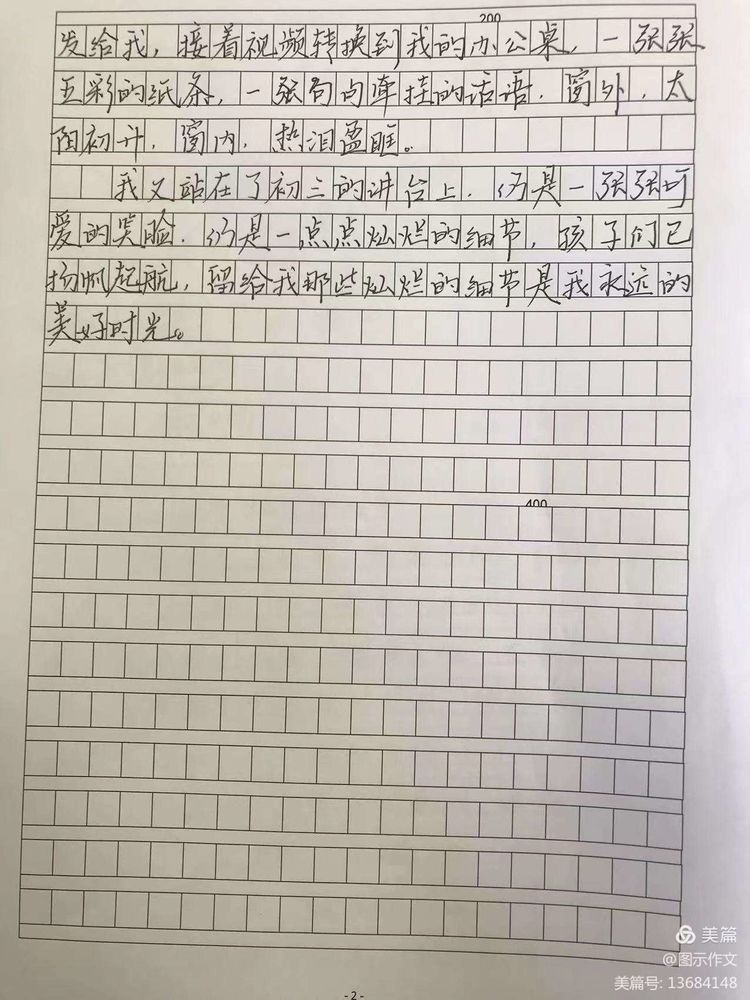 200
发给我，接着视频转换到我的办公桌，一张张
五彩的纸条，一张句句牵挂的话语，窗外，太
阳初升，窗内，热泪盈眶。
我又站在了初三的讲台上，仍是一张张可
爱的笑脸，仍是一点点灿烂的细节，孩子们已
扬帆起航，留给我那些灿烂的细节是我永远的
美好时光。
400
美篇
@图示作文
美篇号: 13684148
-2-